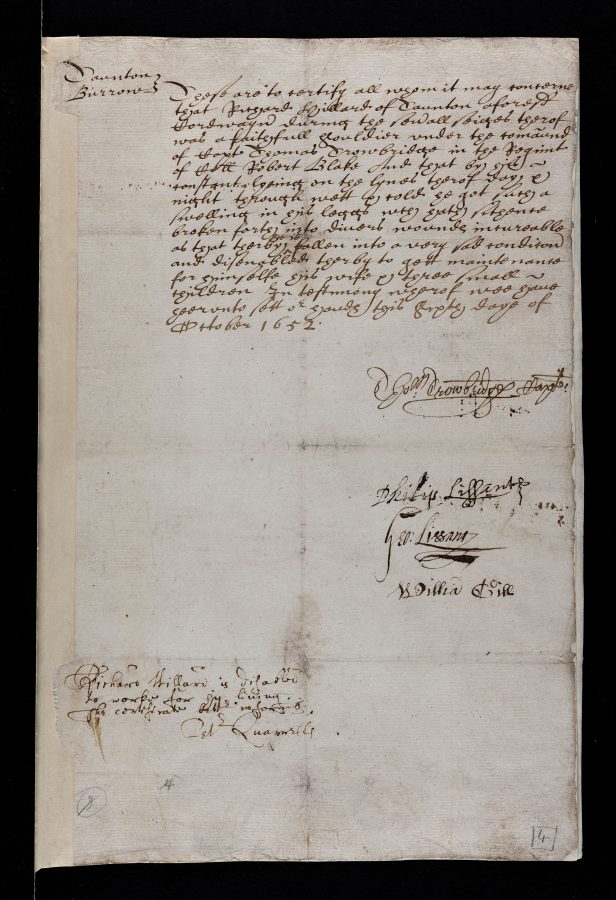 Taunton
Burrow
These are to certify all whom it may concerne
that Richard Hillard of Taunton aforesd
Cordwayner during the sevall seiges therof
was a faithfull souldier under the comaund
of Capt Thomas Trowbridge in the Regimt
of Coll Robert Blake And that by his
constant lyeing on the lynes therof day &
night through wett & cold he got such a
swelling in his leggs wch hath sithence
broken forth into divers wounds incureable
as that therby fallen into a very sad condicon
and disenabled therby to gett maintenance
for himselfe his wife & three small
children In testimony wherof wee have
heerunto sett or hands this Sixth daye of
October 1652
Tho: Trowbridge Capt:
Philip Lissant
Geo: Lissant
Willia Gill
Richard Hillard is
to worke for his living.
the certificate
Quarrells
2
4
4